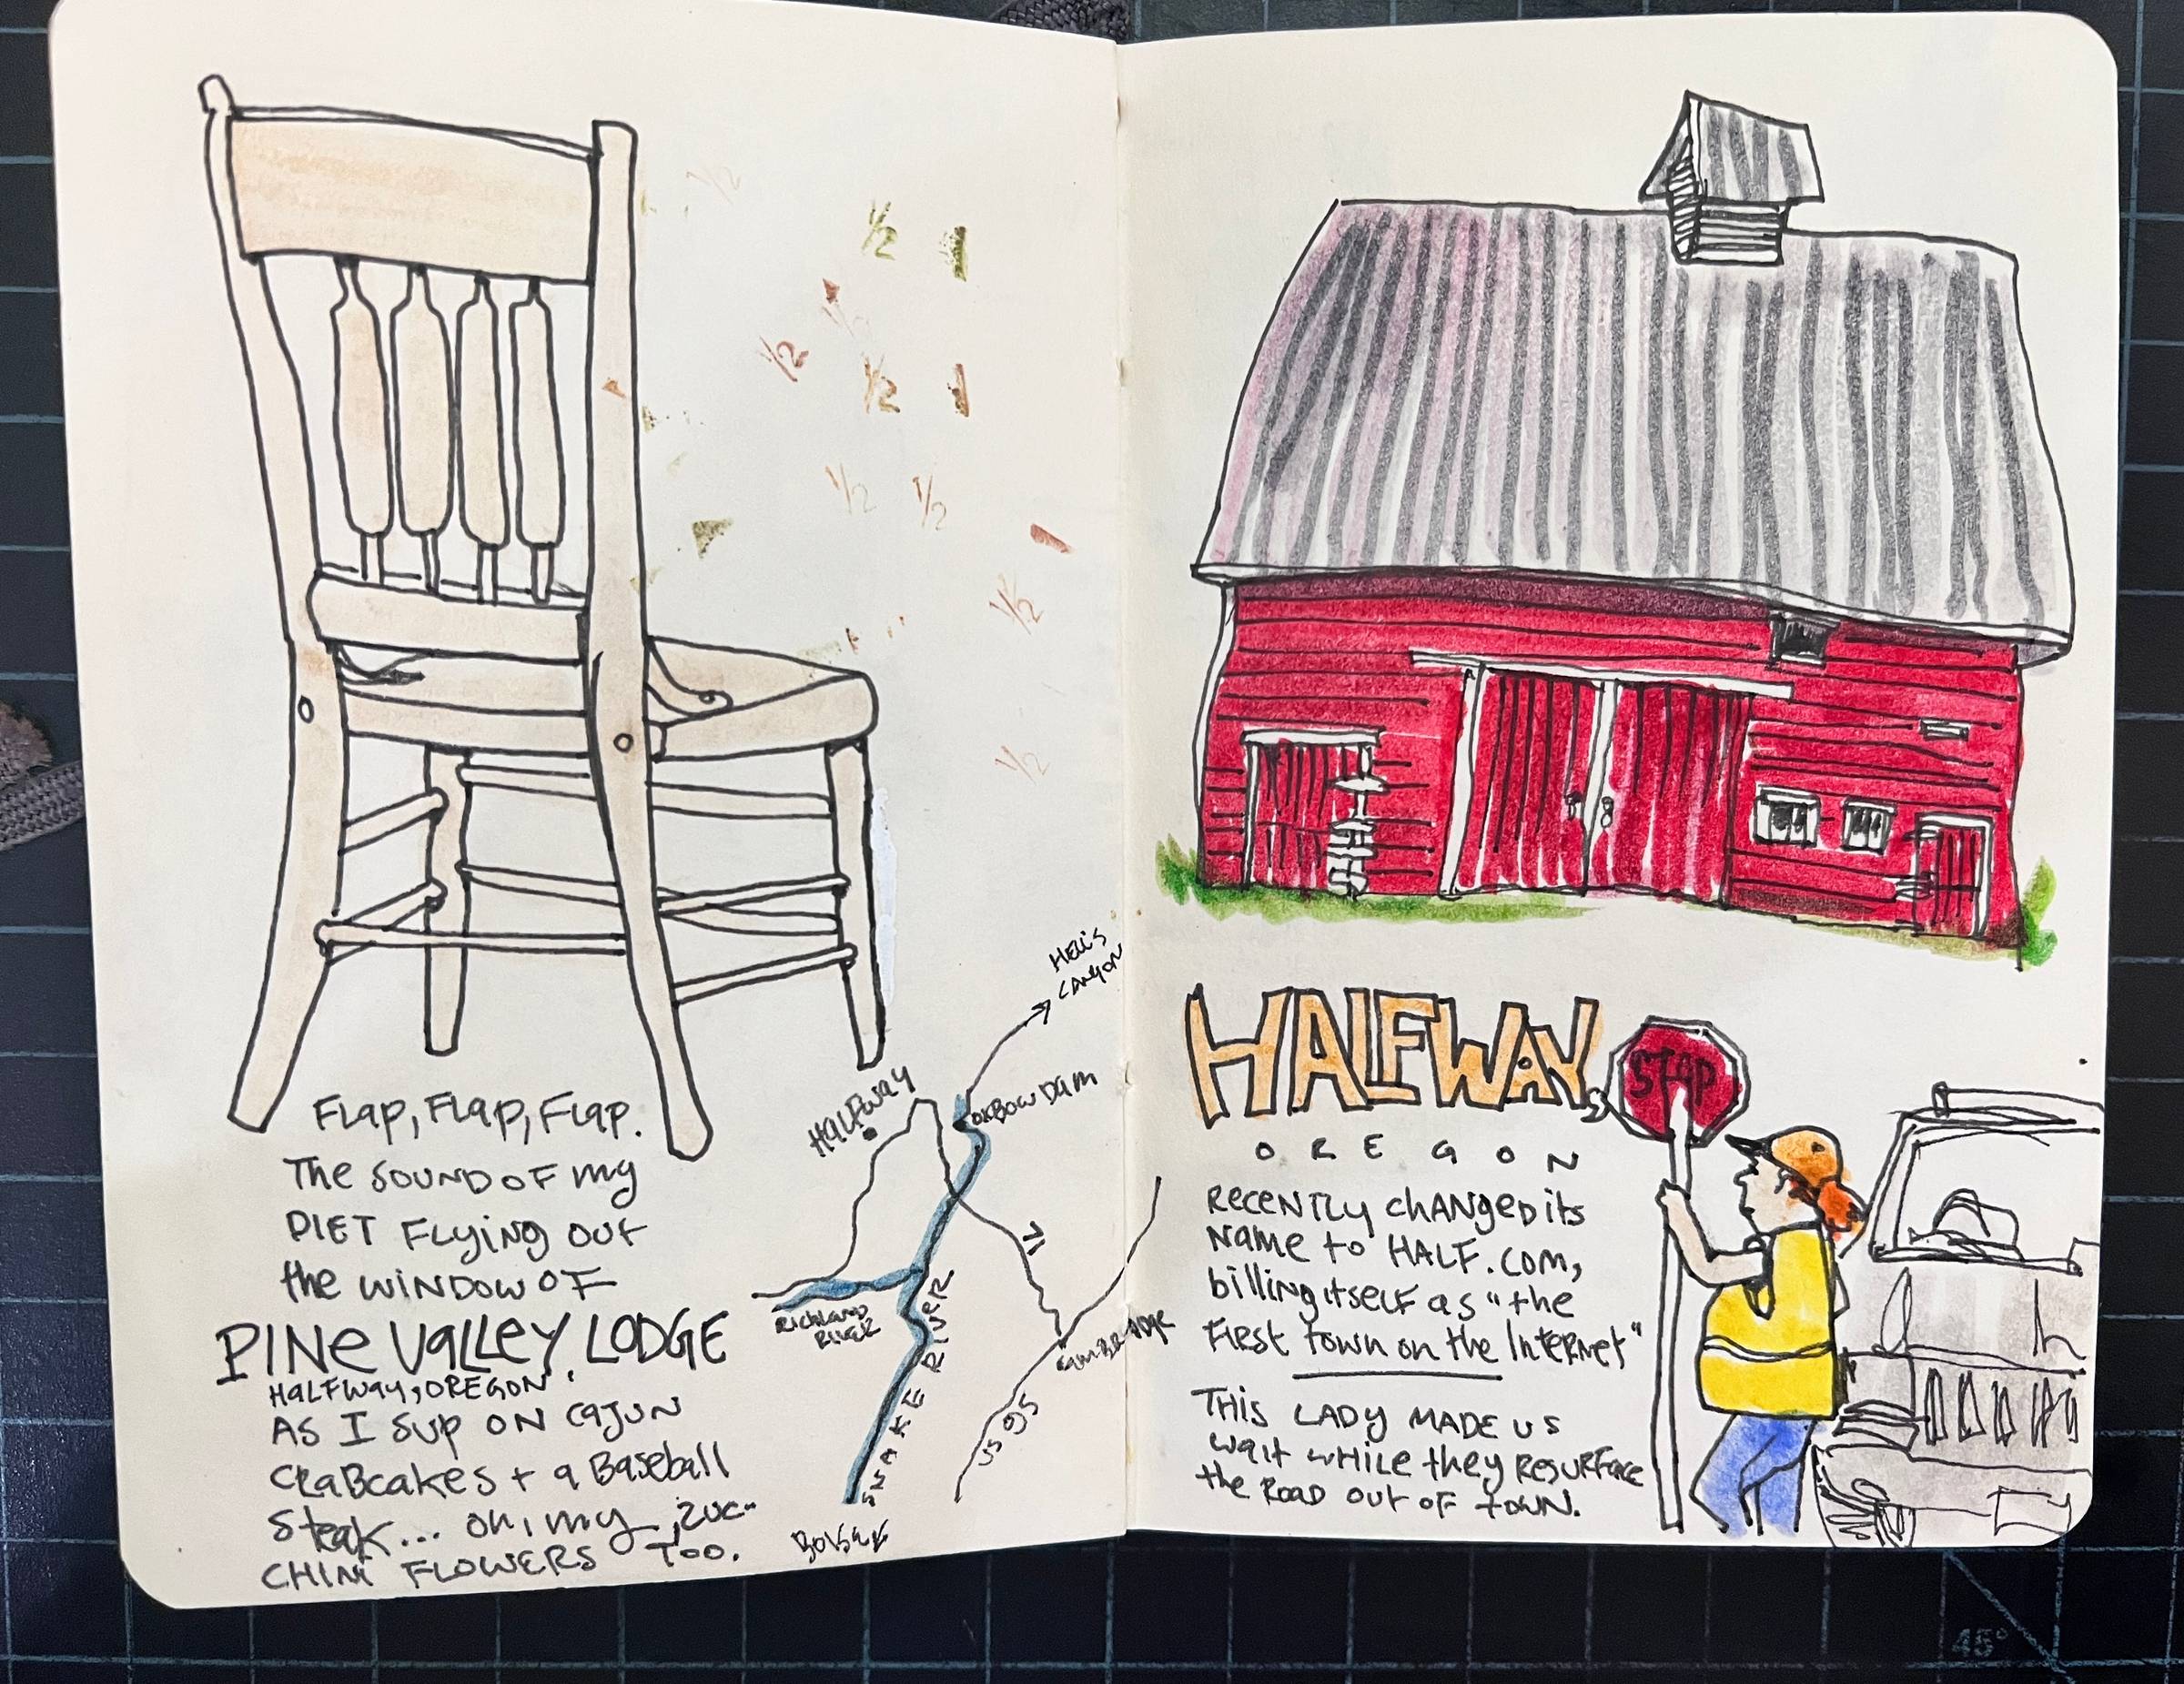 1/2
1/2
1/2
1/2
1/2
1/2
1/2
1/2
1/2
Flap, Flap, Flap.
The SOUND OF my
DIET FLYing OUT
the WINDOW OF
PINE VALLEY LODGE
HALFWAY, OREGON.
AS I SUP ON CAJUN
CRABCAKES + a BaseBall
Steak... oh, my, zuc-
CHINI FLOWERS TOO.
Hell's
Canyon
HALFWAY
OXBOW Dam
RICHLAND
RIVER
SNAKE RIVER
CAMBRIDGE
US 95
BOISE
HALFWAY,
OREGON
RECENTLY CHANGED its
Name to HALF.COM,
billing itself as "the
First town on the Internet"
THIS LADY MADE US
wait while they RESURFACE
the ROAD OUT OF TOWN.
STOP
45°